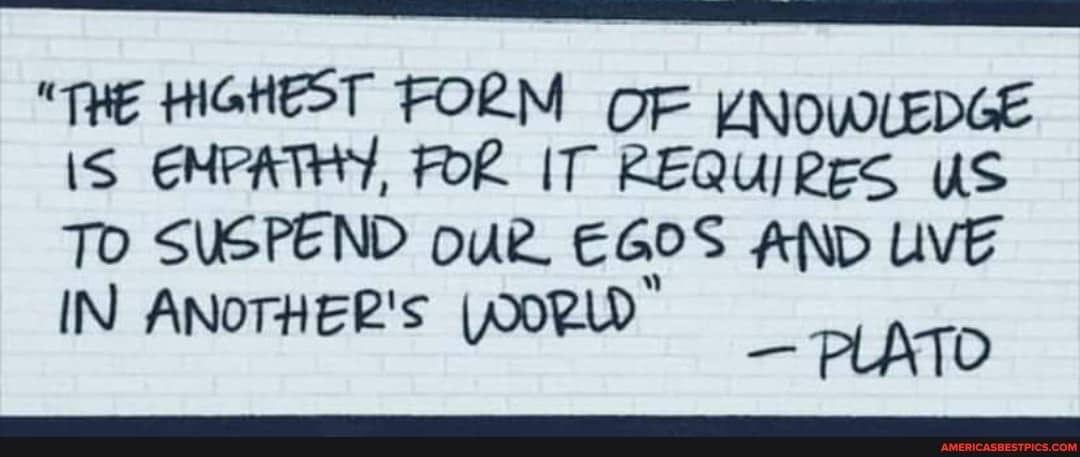 "THE HIGHEST FORM OF KNOWLEDGE
IS EMPATHY, FOR IT REQUIRES US
TO SUSPEND OUR EGOS AND LIVE
IN ANOTHER'S WORLD"
— PLATO
AMERICASBESTPICS.COM